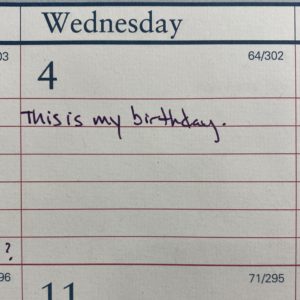 Wednesday
03
4
64/302
This is my birthday.
?
96
11
71/295